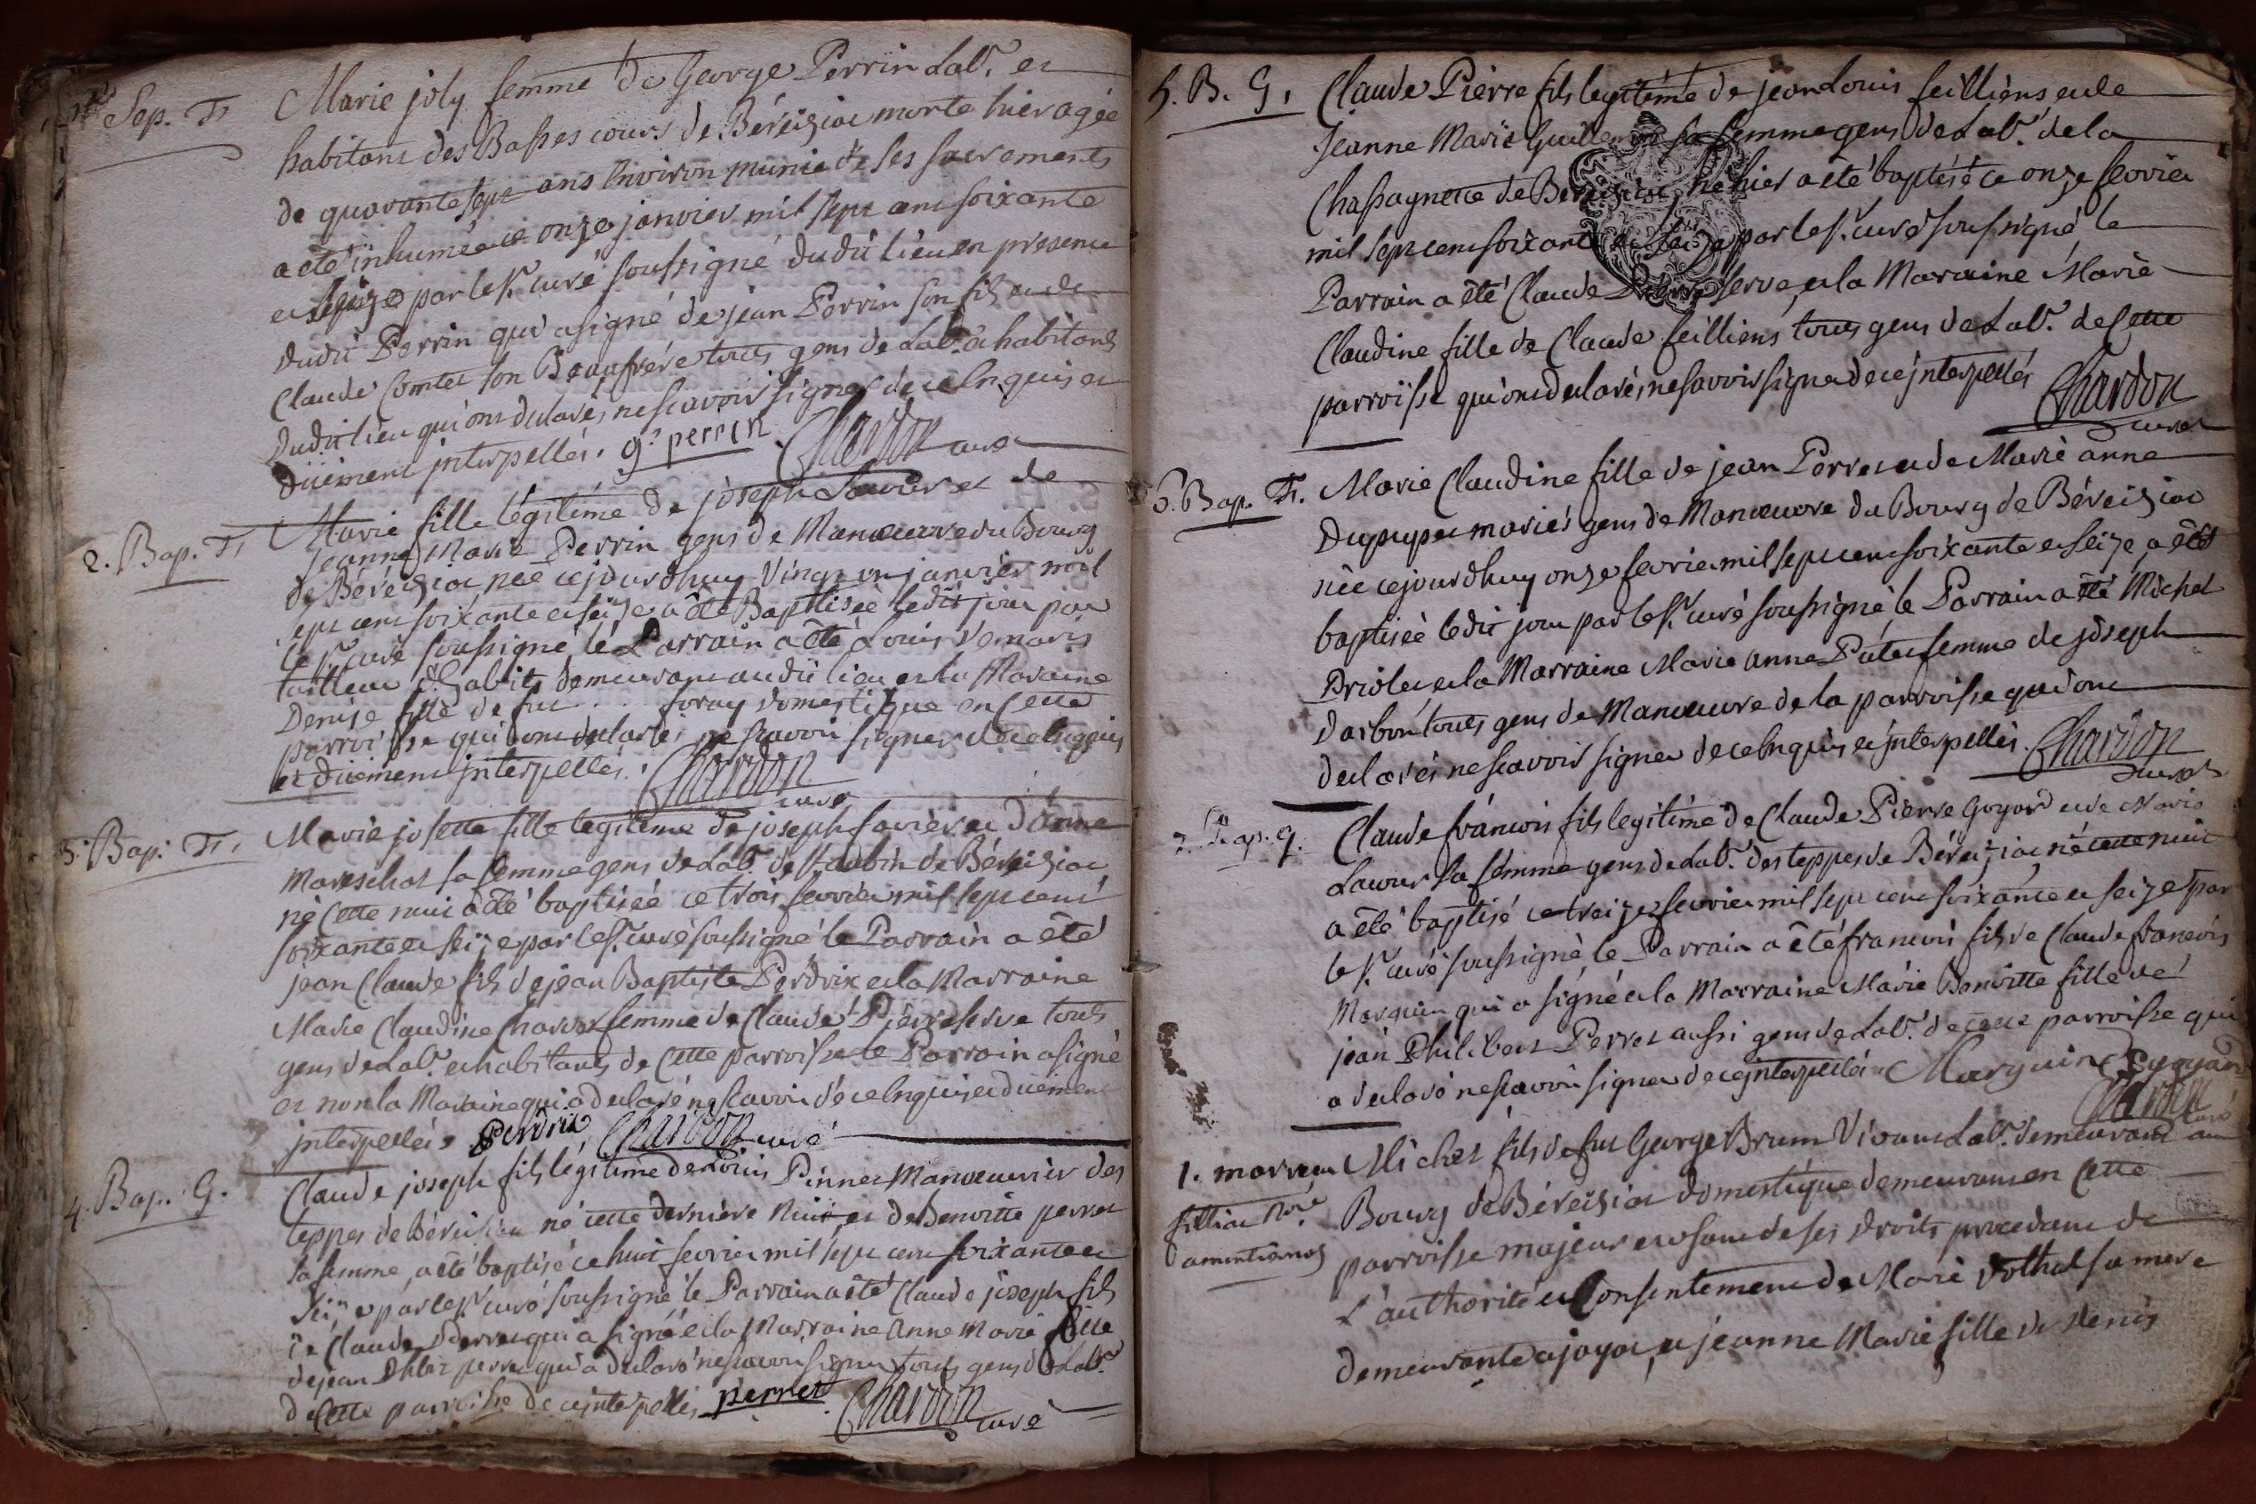 1re Sep. F.
Marie joly femme de George Perrin Labr. et
habitant des Basses cours de Béréiziat morte hier agée
de quarante sept ans Environ munie de ses sacrements
a été inhumée ce onze janvier mil sept cent soixante
et seize par le Sr. curé soussigné dudit lieu en presence
dudit Perrin qui a signé de jean Perrin son fils et de
Claude Comtet son Beaufrére touts gens de Labr. et habitants
dudit lieu qui ont declarés ne scavoir signer de ce Enquis et
düement interpellés. g. perrin Chardon curé
2. Bap. F.
Marie fille légitime de joseph et de
jeanne Marie Perrin gens de Manoeuvre du Bourg
de Béréiziat née cejourdhuy vingt un janvier mil
sept cent soixante et seize a été Baptisée ledit jour par
le Sr. curé soussigné le Parrain a été Louis
tailleur d'habits demeurant audit lieu et la Maraine
Denise fille de fut . . . foray domestique en Cette
parroisse qui ont declarés ne scavoir signer de ce enquis
et düement interpellés. Chardon
curé
3. Bap. F.
Marie josette fille legitime de joseph et d'anne
Mareschal sa femme gens de Labr. de St aubin de Béréiziat
né Cette nuit a été baptisée ce trois fevrier mil sept cent
soixante et seize par le Sr. curé soussigné le Parrain a été
jean Claude fils de jean Baptiste Perdrix et la Marraine
Marie Claudine femme de Claude Pierre serve touts
gens de Labr. et habitants de Cette parroisse le Parrain a signé
et non la Maraine qui a declaré ne scavoir de ce Enquis et düement
interpellés. Perdrix Chardon curé
4. Bap. G.
Claude joseph fils légitime de Louis Manoeuvrier des
teppes de Béréiziat né cette derniére Nuit, et de Benoitte perret
sa femme, a été baptisé ce huit fevrier mil sept cent soixante et
seize par le Sr. curé soussigné le Parrain a été Claude joseph fils
de Claude qui a signé et la Marraine Anne Marie fille
de jean perret qui a declaré ne scavoir signer touts gens de Labr.
de Cette parroisse de ce interpellés pernet Chardon
curé
5. B. G.
Claude Pierre fils legitime de jean Louis feilliens et de
Jeanne Marie sa femme gens de Labr. de la
Chassagnette de Béréiziat né hier a été baptisé ce onze fevrier
mil sept cent soixante et seize par le Sr. curé soussigné le
Parrain a été Claude Pierre serve, et la Maraine Marie
Claudine fille de Claude feilliens touts gens de Labr. de Cette
parroisse qui ont declarés ne savoir signer de ce jnterpellés Chardon
curé
6. Bap. F.
Marie Claudine fille de jean Perret et de Marie anne
Dupupet mariés gens de Manoeuvre du Bourg de Béréiziat
née cejourdhuy onze fevrier mil sept cent soixante et seize a été
baptisée ledit jour par le Sr. curé soussigné, le Parrain a été Michel
et la Marraine Marie anne femme de joseph
Darbon touts gens de Manoeuvre de la parroisse qui ont
declarés ne scavoir signer de ce Enquis et jnterpellés. Chardon
curé
7. Bap. g.
Claude francois fils legitime de Claude Pierre Goyard et de Marie
Lacour sa femme gens de Labr. des teppes de Béréiziat né cette nuit
a été baptisé ce treize fevrier mil sept cent soixante et seize par
le Sr. curé soussigné le Parrain a été francois fils de Claude francois
Marguin qui a signé et la Marraine Marie Benoitte fille de
jean Philibert Perret aussi gens de Labr. de cette parroisse qui
a declaré ne scavoir signer de ce jnterpellés Marguin goyard
Chardon curé
1. mar
Michel fils de fut George Brum Vivant Labr. demeurant au
Bourg de Béréiziat domestique demeurant en Cette
parroisse majeur et usant de ses droits procedant de
L'authorité et Consentement de Marie sa mere
demeurante a jayat, et jeanne Marie fille de Denis